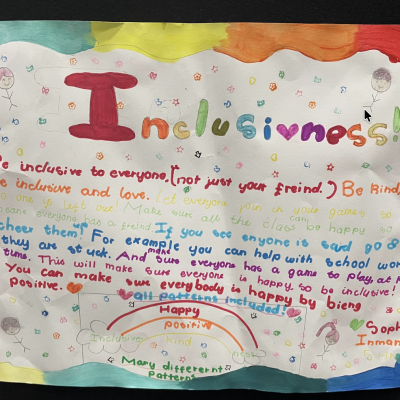 Inclusiveness!
e inclusive to everyone. (not just your freind.) Be kind,
e inclusive and love. Let everyone join in your games so
no one is left out! Make sure all the class can be happy so
means everyone has a freind If you see enyone is sard go &
cheer them up! For example you can help with school wor
they are stuck. And make sure everyone has a game to play, at p
time. This will make sure everyone is happy, so be inclusive!
You can make sure everybody is happy by bieng
positive.
all patterns included!
Happy
positive
Inclusive kind
Many differernt
patterns
Soph
Inman